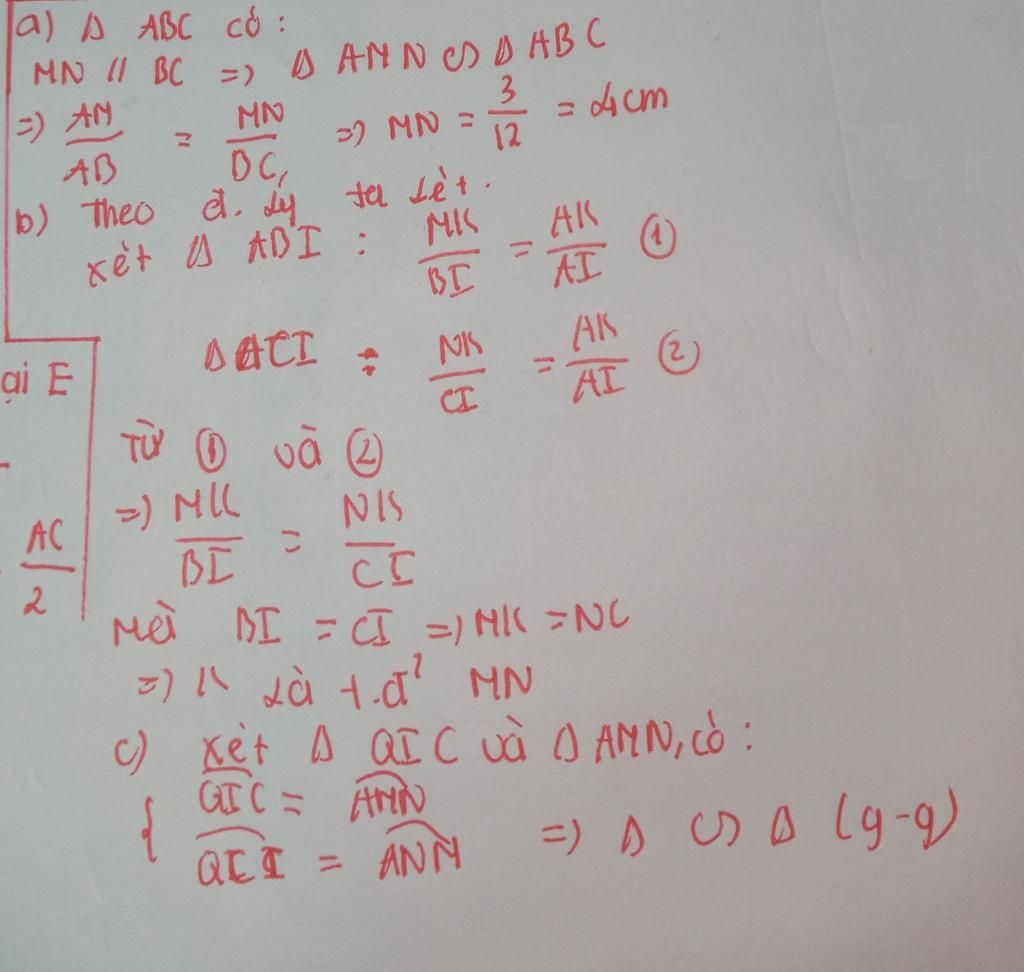 a) Δ ABC có:
MN // BC => Δ AMN ∽ Δ ABC
=> AM/AB = MN/BC, => MN = 3/12 = 4cm
b) Theo đ. lý ta lét.
xét Δ ABI : MK/BI = AK/AI ①
Δ ACI : NK/CI = AK/AI ②
ại E
Từ ① và ②
=> MK/BI = NK/CI
AC/2
Mà BI = CI => MK = NC
=> K là t.đ² MN
c) xét Δ QIC và Δ AMN, có:
{ QIC = AMN
QCI = ANM => Δ ∽ Δ (g-g)